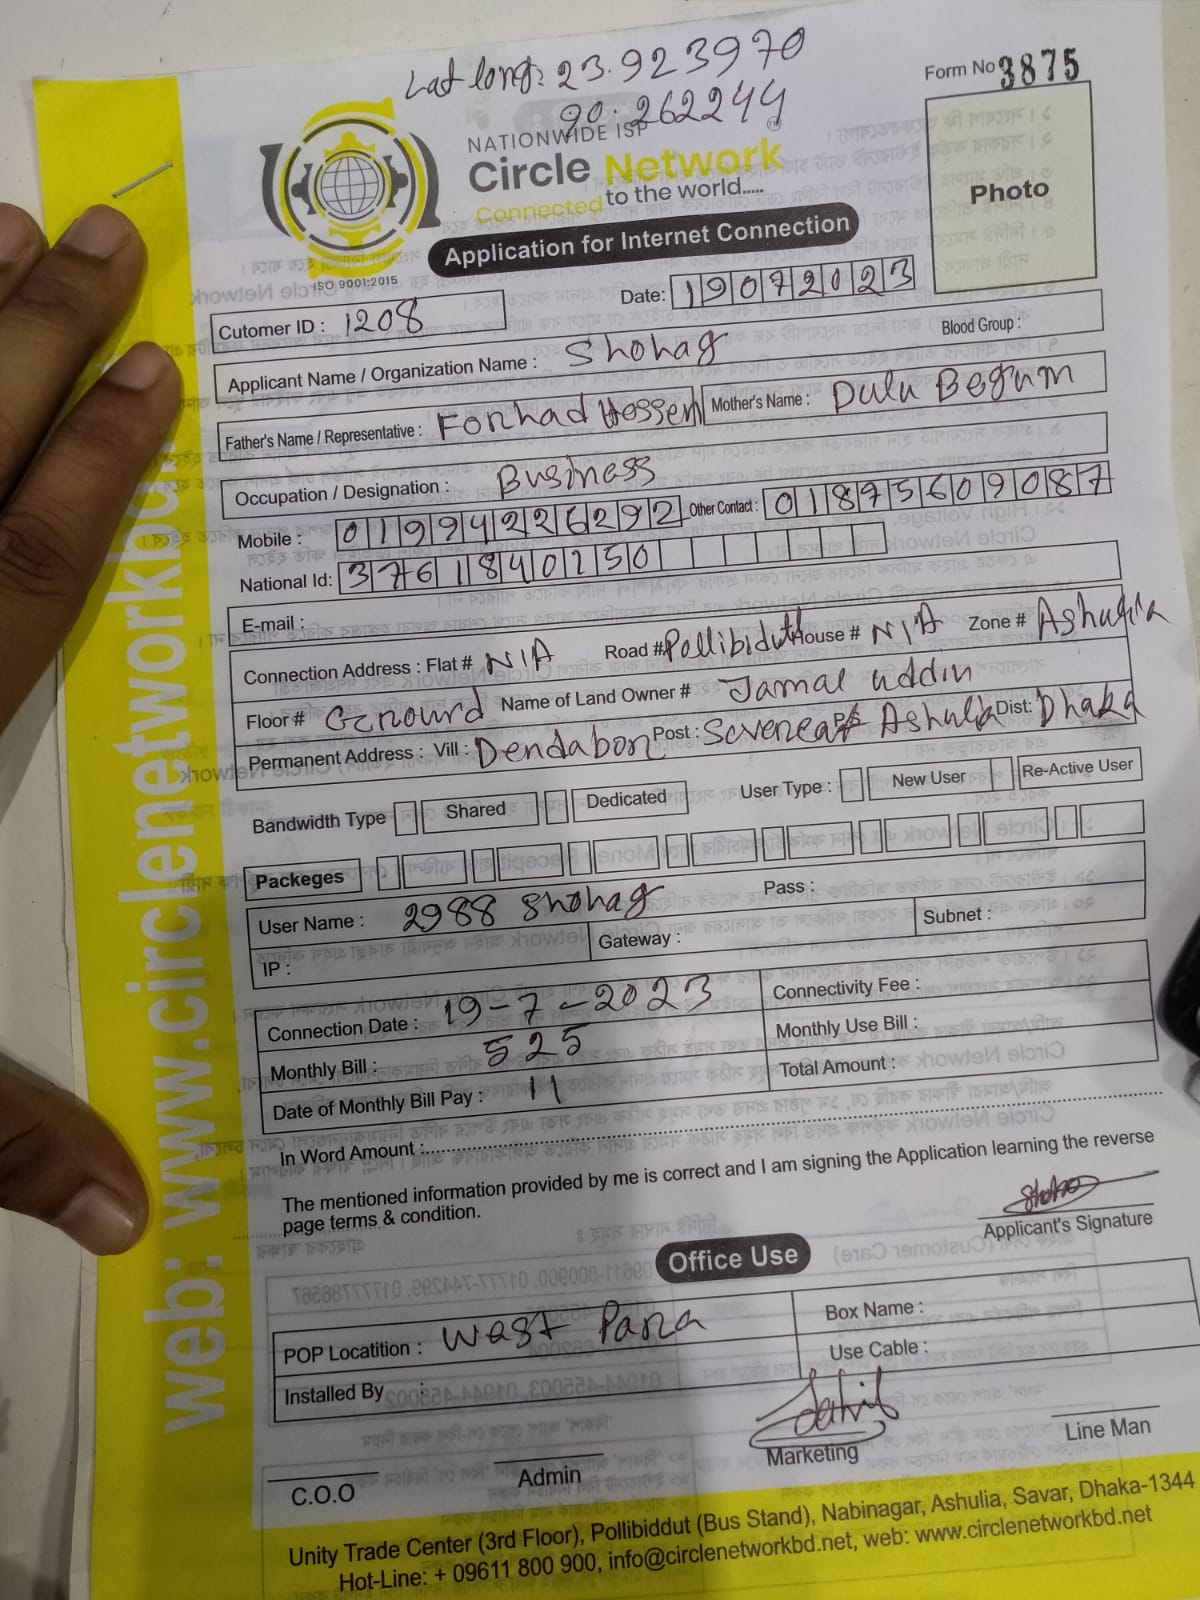 Lat long: 23.923970
90.262244
Form No 3875
NATIONWIDE ISP
Circle Network
Connected to the world.....
ISO 9001:2015
Photo
Application for Internet Connection
Date: 19072023
Cutomer ID : 1208
Applicant Name / Organization Name : Shohag Blood Group :
Father's Name / Representative : Forhad Hossen Mother's Name : Dulu Begum
Occupation / Designation : Business
Mobile : 01994226292 Other Contact : 01875609087
National Id: 3761840250
E-mail :
Connection Address : Flat # N/A Road # Pollibidutt House # N/A Zone # Ashulia
Floor # Gcnourd Name of Land Owner # Jamal uddin
Permanent Address : Vill : Dendabor Post : P/S Ashulia Dist: Dhaka
Bandwidth Type Shared Dedicated User Type : New User Re-Active User
Packeges
User Name : 2988 Shohag Pass :
IP : Gateway : Subnet :
Connection Date : 19-7-2023 Connectivity Fee :
Monthly Bill : 525 Monthly Use Bill :
Date of Monthly Bill Pay : 11 Total Amount :
In Word Amount :
The mentioned information provided by me is correct and I am signing the Application learning the reverse
page terms & condition.
Applicant's Signature
Office Use
POP Locatition : West Para Box Name :
Installed By : Use Cable :
C.O.O Admin Marketing Line Man
Unity Trade Center (3rd Floor), Pollibiddut (Bus Stand), Nabinagar, Ashulia, Savar, Dhaka-1344
Hot-Line: + 09611 800 900, info@circlenetworkbd.net, web: www.circlenetworkbd.net
web: www.circlenetworkbd